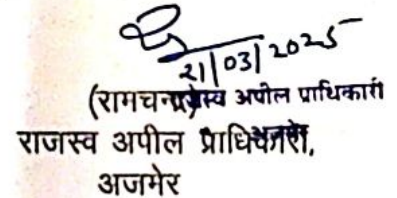 21/03/2025
(रामचन्द्र) राजस्व अपील प्राधिकारी
राजस्व अपील प्राधिकारी,
अजमेर
अजमेर